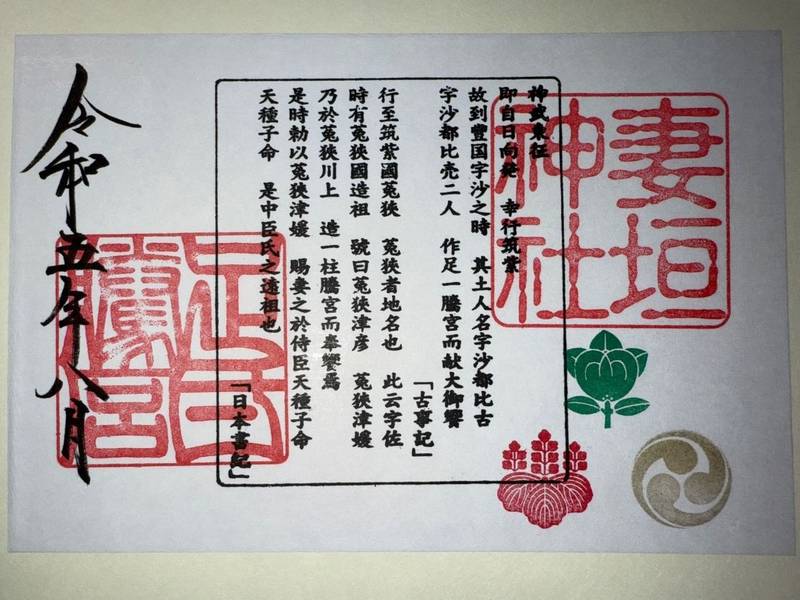 妻垣
神社
神武東征
即自日向発　幸行筑紫
故到豊国宇沙之時　其土人名宇沙都比古
宇沙都比売二人　作足一騰宮而献大御饗
「古事記」
行至筑紫國菟狭　菟狭者地名也　此云宇佐
時有菟狭國造祖　號曰菟狭津彦　菟狭津媛
乃於菟狭川上　造一柱騰宮而奉饗焉
是時勅以菟狭津媛　賜妻之於侍臣天種子命
天種子命　是中臣氏之遠祖也
「日本書紀」
騰宮
令和五年八月